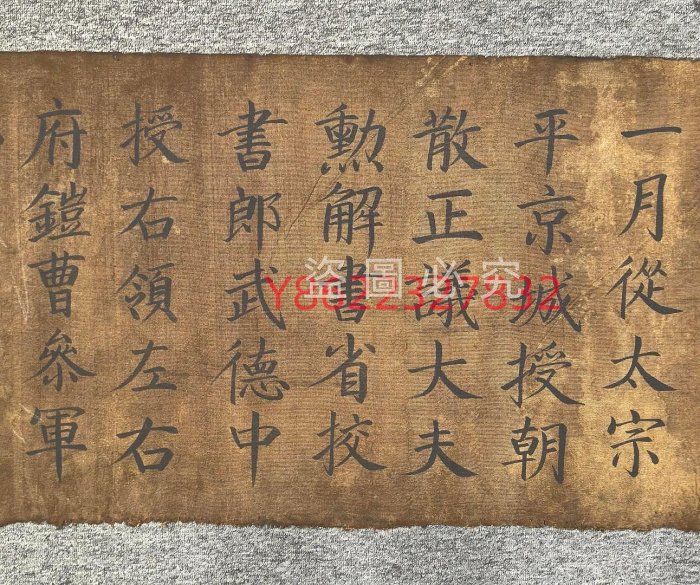 一月從太宗
平京城授朝
散正議大夫
勳解書省校
書郎武德中
授右領左右
府鎧曹參軍
盜圖必究